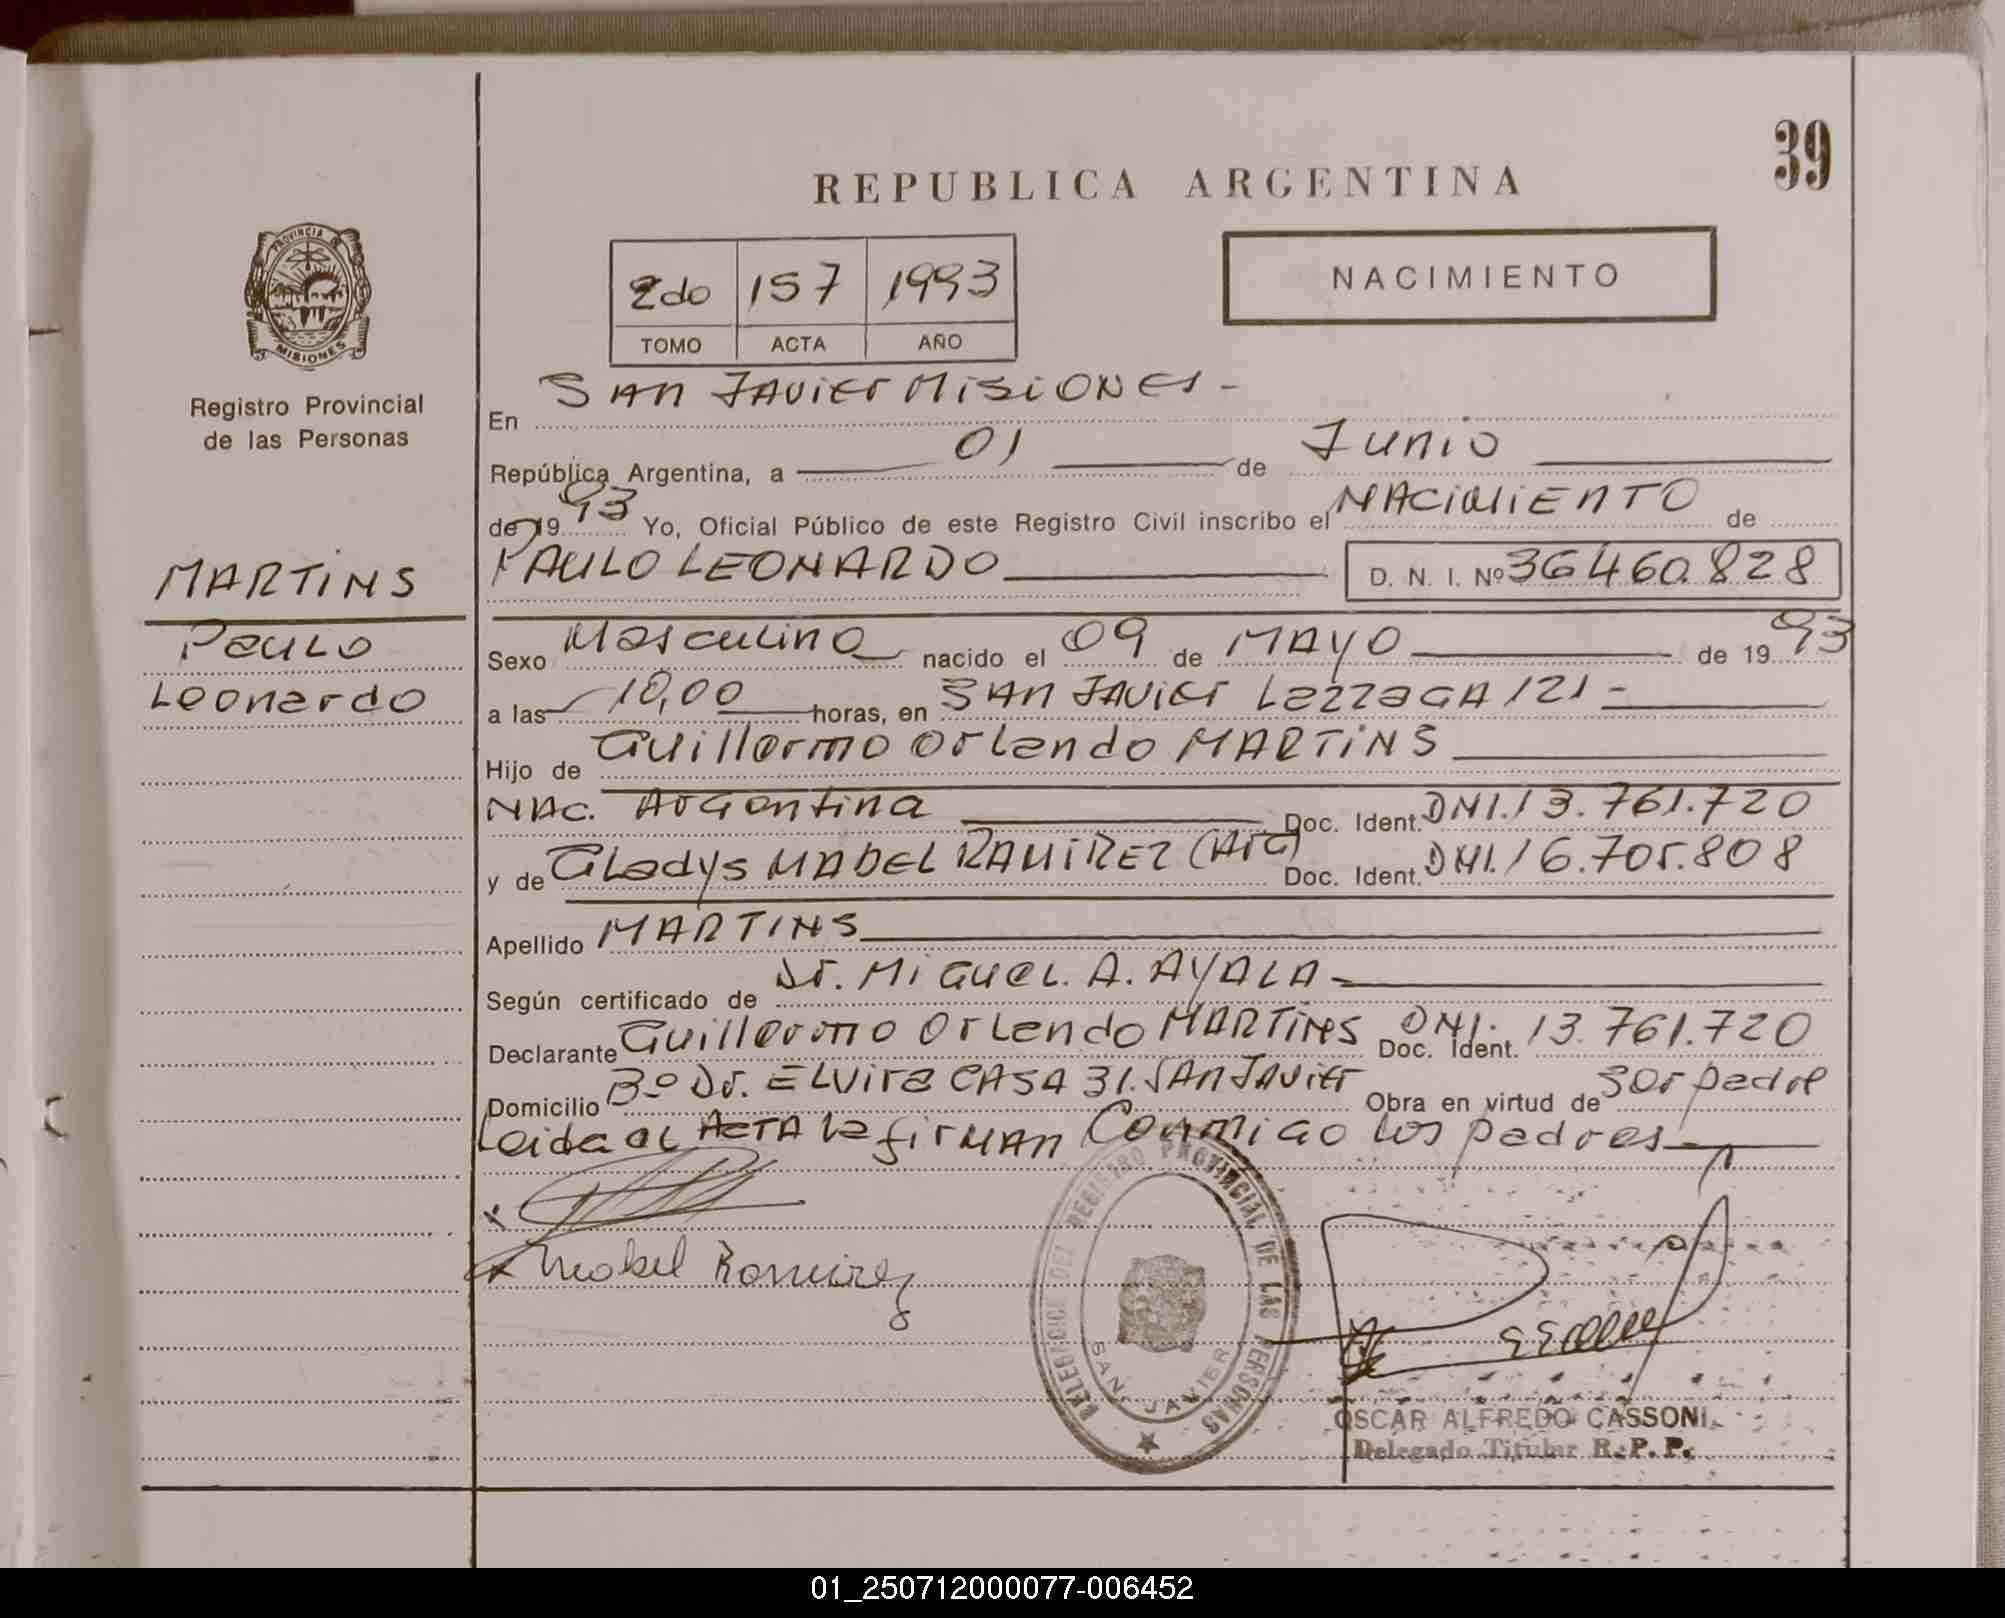 39
REPUBLICA ARGENTINA
PROVINCIA DE
MISIONES
Registro Provincial
de las Personas
2do 157 1993
TOMO ACTA AÑO
NACIMIENTO
En SAN JAVIER MISIONES -
República Argentina, a 01 de Junio
de 19 93 Yo, Oficial Público de este Registro Civil inscribo el NACIMIENTO de
MARTINS
PAULO LEONARDO D. N. I. Nº 36460.828
Paulo
Leonardo
Sexo Masculino nacido el 09 de MAYO de 19 93
a las 10,00 horas, en SAN JAVIER LezzagA 121 -
Hijo de Guillermo Orlando MARTINS
NAC. Argentina Doc. Ident. DNI. 13.761.720
y de Gladys MABEL RAMIREZ (Arg) Doc. Ident. DNI. 16.705.808
Apellido MARTINS
Según certificado de Dr. Miguel. A. AYALA -
Declarante Guillermo Orlando MARTINS Doc. Ident. DNI. 13.761.720
Domicilio Bº Dr. ELvira CASA 31. SAN JAVIER Obra en virtud de Ser padre
Leida el ACTA la firman Conmigo los padres -
x
x Mabel Ramirez
DELEGACION DEL REGISTRO PROVINCIAL DE LAS PERSONAS
SAN JAVIER
OSCAR ALFREDO CASSONI
Delegado Titular R. P. P.
01_250712000077-006452